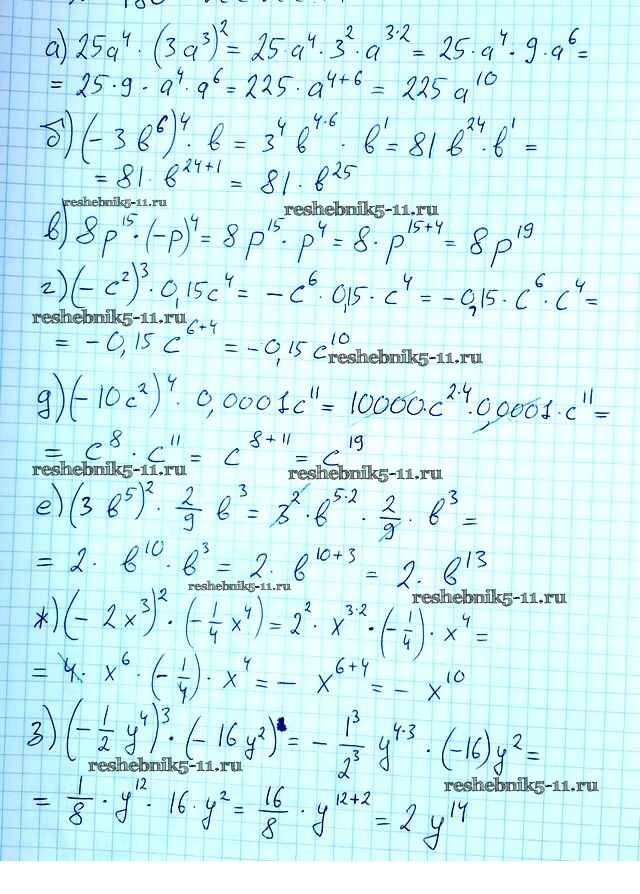 а) 25a⁴ · (3a³)² = 25·a⁴·3²·a³·² = 25·a⁴·9·a⁶ =
= 25·9·a⁴·a⁶ = 225·a⁴⁺⁶ = 225a¹⁰
б) (-3b⁶)⁴·b = 3⁴b⁴·⁶·b¹ = 81b²⁴·b¹ =
= 81·b²⁴⁺¹ = 81·b²⁵
reshebnik5-11.ru
reshebnik5-11.ru
в) 8p¹⁵·(-p)⁴ = 8p¹⁵·p⁴ = 8·p¹⁵⁺⁴ = 8p¹⁹
г) (-c²)³·0,15c⁴ = -c⁶·0,15·c⁴ = -0,15·c⁶·c⁴ =
reshebnik5-11.ru
= -0,15c⁶⁺⁴ = -0,15c¹⁰
reshebnik5-11.ru
д) (-10c²)⁴·0,0001c¹¹ = 10000·c²·⁴·0,0001·c¹¹ =
= c⁸·c¹¹ = c⁸⁺¹¹ = c¹⁹
reshebnik5-11.ru
reshebnik5-11.ru
е) (3b⁵)²·2/9 b³ = 3²·b⁵·²·2/9·b³ =
= 2·b¹⁰·b³ = 2·b¹⁰⁺³ = 2·b¹³
reshebnik5-11.ru
reshebnik5-11.ru
ж) (-2x³)²·(-1/4 x⁴) = 2²·x³·²·(-1/4)·x⁴ =
= 4·x⁶·(-1/4)·x⁴ = -x⁶⁺⁴ = -x¹⁰
з) (-1/2 y⁴)³·(-16y²) = -1³/2³ y⁴·³·(-16)y² =
reshebnik5-11.ru
reshebnik5-11.ru
= 1/8·y¹²·16·y² = 16/8·y¹²⁺² = 2y¹⁴